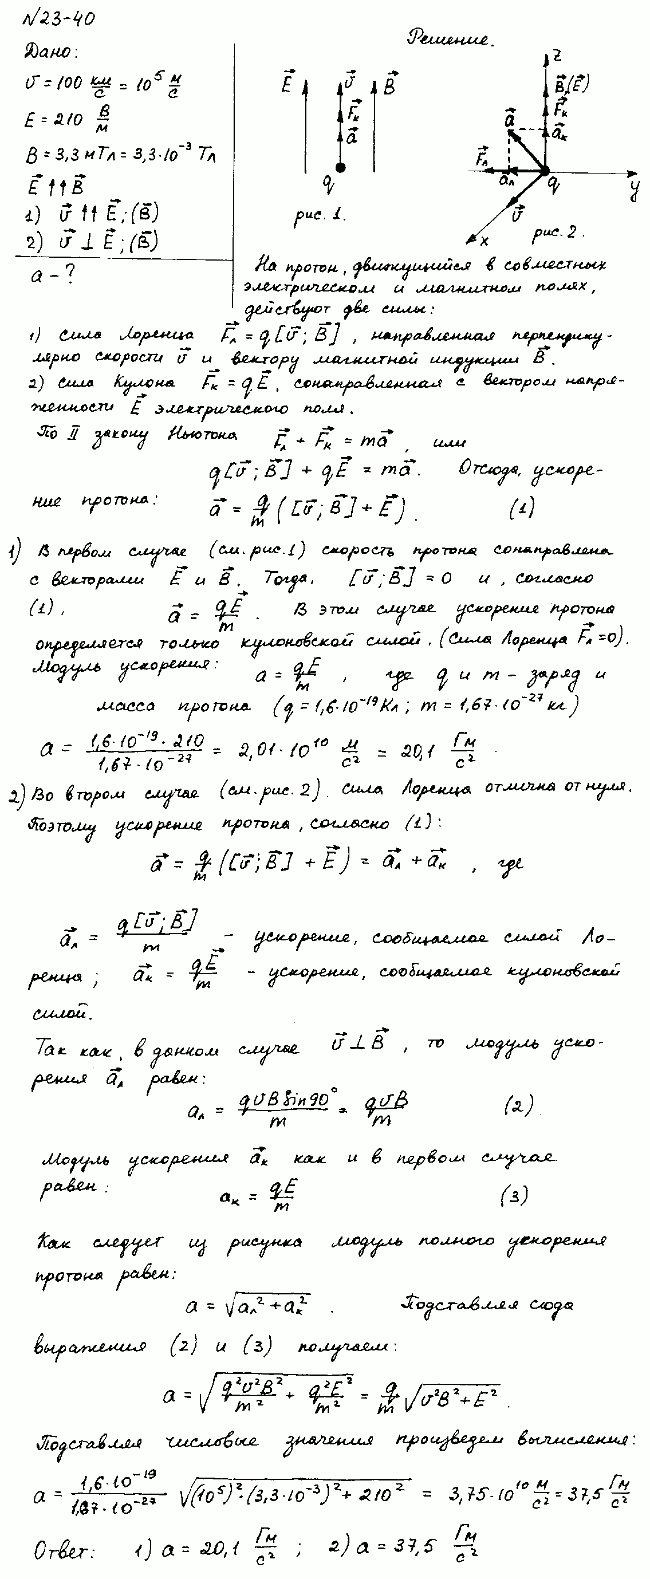 №23-40
Дано:
v = 100 км/с = 10⁵ м/с
E = 210 В/м
B = 3,3 мТл = 3,3·10⁻³ Тл
E⃗ ↑↑ B⃗
1) v⃗ ↑↑ E⃗; (B⃗)
2) v⃗ ⊥ E⃗; (B⃗)
a - ?
Решение.
E⃗ v⃗ B⃗
F⃗к
a⃗
q
рис. 1.
z
B⃗,(E⃗)
F⃗к
a⃗ a⃗к
F⃗л
a⃗л q y
v⃗
x
рис. 2.
На протон, движущийся в совместных
электрическом и магнитном полях,
действуют две силы:
1) Сила Лоренца F⃗л = q[v⃗; B⃗], направленная перпендику-
лярно скорости v⃗ и вектору магнитной индукции B⃗.
2) Сила Кулона F⃗к = qE⃗, сонаправленная с вектором напря-
женности E⃗ электрического поля.
По II закону Ньютона F⃗л + F⃗к = ma⃗, или
q[v⃗; B⃗] + qE⃗ = ma⃗. Отсюда, ускоре-
ние протона: a⃗ = q/m ([v⃗; B⃗] + E⃗). (1)
1) В первом случае (см. рис. 1) скорость протона сонаправлена
с векторами E⃗ и B⃗. Тогда, [v⃗; B⃗] = 0 и, согласно
(1), a⃗ = qE⃗/m. В этом случае ускорение протона
определяется только кулоновской силой. (Сила Лоренца F⃗л = 0).
Модуль ускорения: a = qE/m, где q и m - заряд и
масса протона (q = 1,6·10⁻¹⁹ Кл; m = 1,67·10⁻²⁷ кг)
a = 1,6·10⁻¹⁹·210 / 1,67·10⁻²⁷ = 2,01·10¹⁰ м/с² = 20,1 Гм/с².
2) Во втором случае (см. рис. 2) сила Лоренца отлична от нуля.
Поэтому ускорение протона, согласно (1):
a⃗ = q/m ([v⃗; B⃗] + E⃗) = a⃗л + a⃗к, где
a⃗л = q[v⃗; B⃗]/m - ускорение, сообщаемое силой Ло-
ренца; a⃗к = qE⃗/m - ускорение, сообщаемое кулоновской
силой.
Так как, в данном случае v⃗ ⊥ B⃗, то модуль уско-
рения a⃗л равен:
aл = qvB sin90°/m = qvB/m (2)
Модуль ускорения a⃗к как и в первом случае
равен: aк = qE/m (3)
Как следует из рисунка модуль полного ускорения
протона равен:
a = √(aл² + aк²). Подставляя сюда
выражения (2) и (3) получаем:
a = √(q²v²B²/m² + q²E²/m²) = q/m √(v²B² + E²).
Подставляя числовые значения произведем вычисления:
a = 1,6·10⁻¹⁹ / 1,67·10⁻²⁷ √((10⁵)²·(3,3·10⁻³)² + 210²) = 3,75·10¹⁰ м/с² = 37,5 Гм/с²
Ответ: 1) a = 20,1 Гм/с²; 2) a = 37,5 Гм/с²